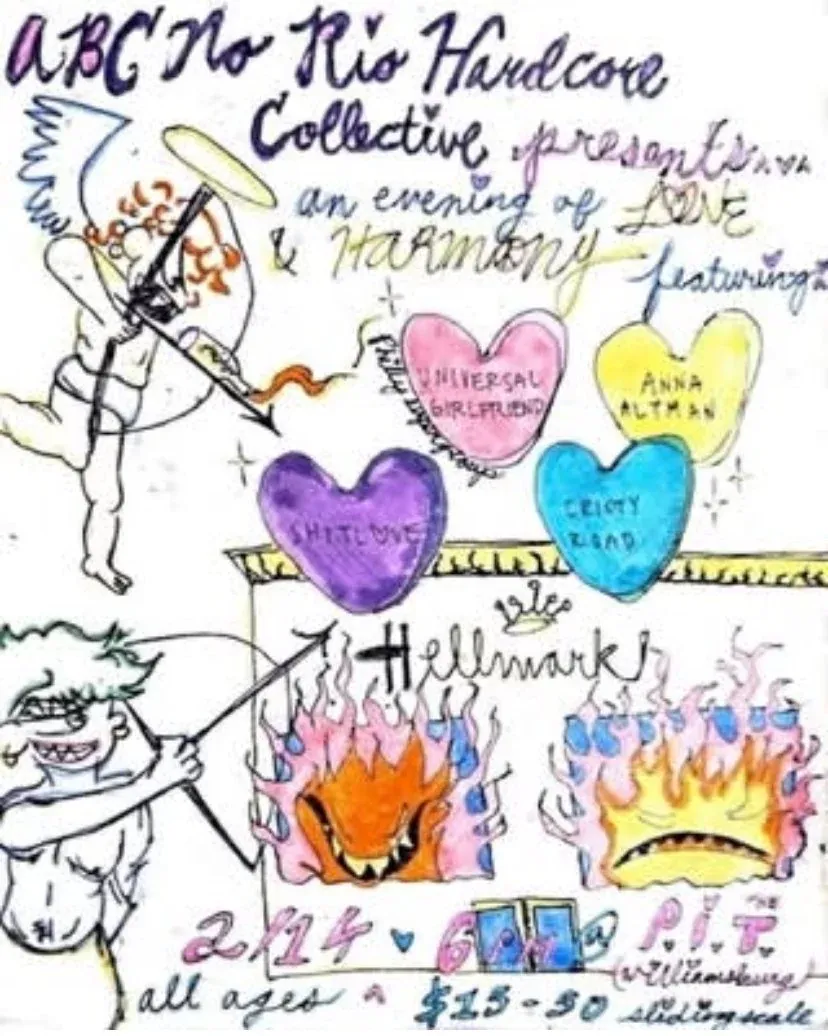 ABC No Rio Hardcore
Collective presents...
an evening of LOVE
& HARMONY
featuring:
UNIVERSAL
GIRLFRIEND
Philly
ANNA
ALTMAN
SHITLOVE
CRISTY
ROAD
Hellmark
2/14 6PM @ THE P.I.T.
(Williamsburg)
all ages $15-30 sliding scale